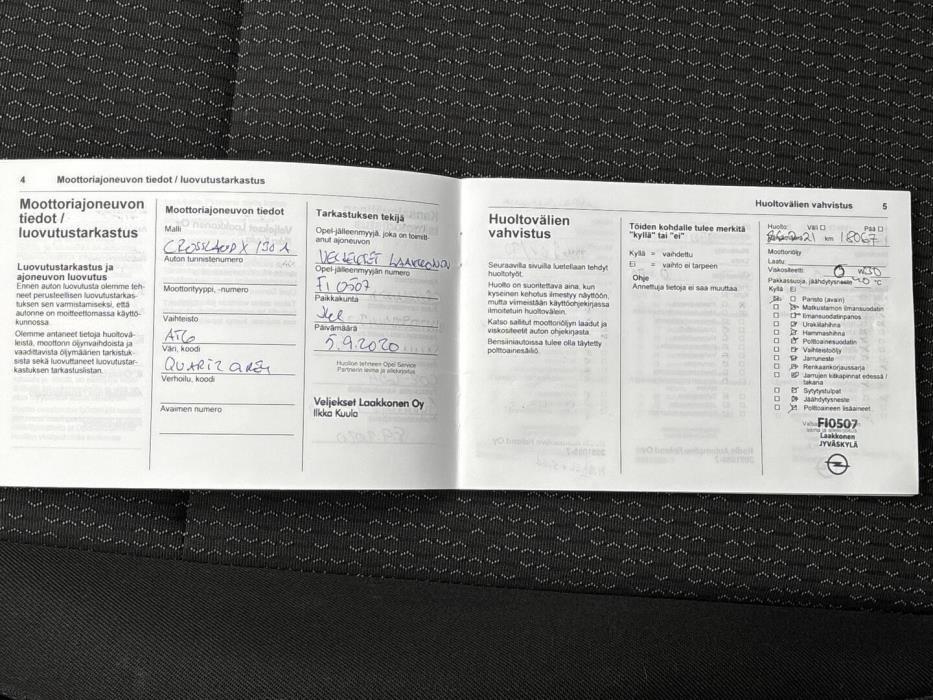 4 Moottoriajoneuvon tiedot / luovutustarkastus
Moottoriajoneuvon
tiedot /
luovutustarkastus
Luovutustarkastus ja
ajoneuvon luovutus
Ennen auton luovutusta olemme teh-
neet perusteellisen luovutustarkas-
tuksen sen varmistamiseksi, että
autonne on moitteettomassa käyttö-
kunnossa.
Olemme antaneet tietoja huoltovä-
leistä, moottorin öljynvaihdoista ja
vaadittavista öljymäärien tarkistuk-
sista sekä luovuttaneet luovutustar-
kastuksen tarkastuslistan.
Moottoriajoneuvon tiedot
Malli
CROSSLAND X 130 A
Auton tunnistenumero
Moottorityyppi, -numero
Vaihteisto
AT6
Väri, koodi
QUARTZ GREY
Verhoilu, koodi
Avaimen numero
Tarkastuksen tekijä
Opel-jälleenmyyjä, joka on toimitt-
anut ajoneuvon
VELJEKSET LAAKKONEN
Opel-jälleenmyyjän numero
FI 0507
Paikkakunta
Jkl
Päivämäärä
5.9.2020
Huollon tehneen Opel Service
Partnerin leima ja allekirjoitus
Veljekset Laakkonen Oy
Ilkka Kuula
Huoltovälien vahvistus 5
Huoltovälien
vahvistus
Seuraavilla sivuilla luetellaan tehdyt
huoltotyöt.
Huolto on suoritettava aina, kun
kyseinen kehotus ilmestyy näyttöön,
mutta viimeistään käyttöohjekirjassa
ilmoitetuin huoltovälein.
Katso sallitut moottoriöljyn laadut ja
viskositeetit auton ohjekirjasta.
Bensiiniautoissa tulee olla täytetty
polttoainesäiliö.
Töiden kohdalle tulee merkitä
"kyllä" tai "ei"
Kyllä = vaihdettu
Ei = vaihto ei tarpeen
Ohje
Annettuja tietoja ei saa muuttaa.
Huolto: Väli Pää
2021 km 18067
Moottoriöljy
Laatu:
Viskositeetti: 0 W30
Pakkassuoja, jäähdytysneste -40 °C
Kyllä Ei
Paristo (avain)
Matkustamon ilmansuodatin
Ilmansuodatinpanos
Urakiilahihna
Hammashihna
Polttoainesuodatin
Vaihteistoöljy
Jarruneste
Renkaankorjaussarja
Jarrujen kitkapinnat edessä /
takana
Sytytystulpat
Jäähdytysneste
Polttoaineen lisäaineet
FI0507
Laakkonen
JYVÄSKYLÄ